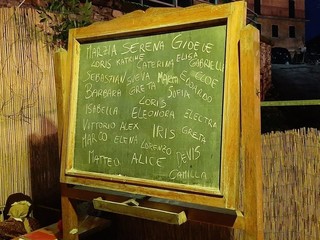 MARZIA SERENA GIOELE
LORIS KATRINE CATERINA ELISA GABRIELE
SEBASTIAN SVEVA MARTA EDOARDO
BARBARA GRETA SOFIA
LORIS
ISABELLA ELEONORA ELECTRA
VITTORIO ALEX IRIS GRETA
MARCO ELENA LORENZO
MATTEO ALICE DEVIS
CAMILLA